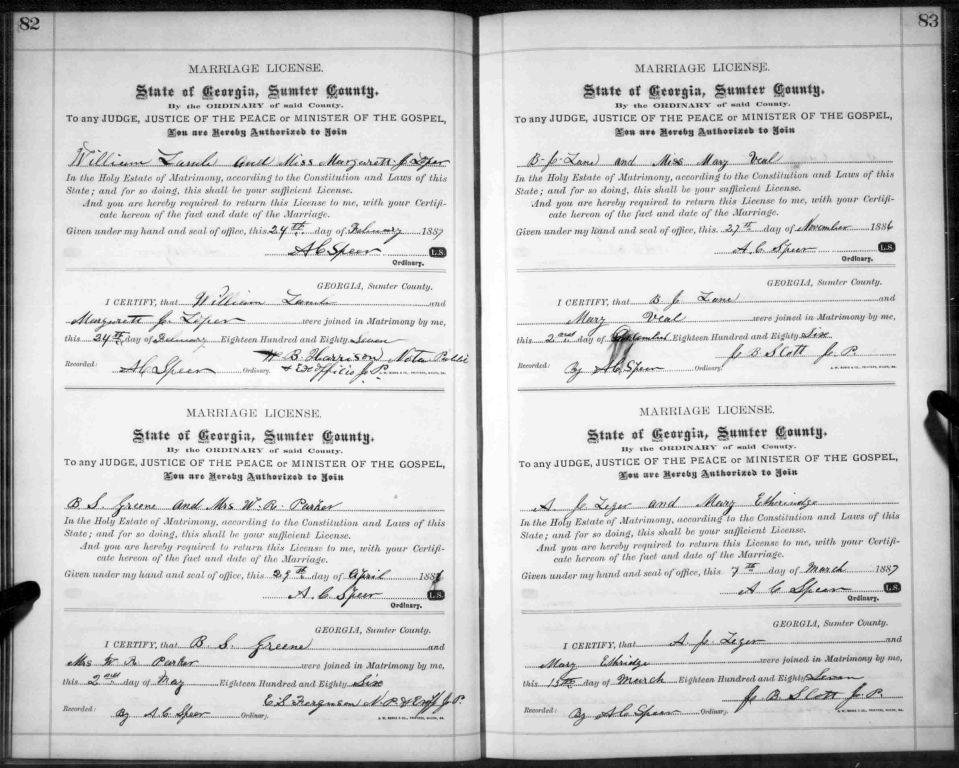 82
MARRIAGE LICENSE.
State of Georgia, Sumter County.
By the ORDINARY of said County.
To any JUDGE, JUSTICE OF THE PEACE or MINISTER OF THE GOSPEL,
You are Hereby Authorized to Join
William Lamb and Miss Margarett J. Loper
In the Holy Estate of Matrimony, according to the Constitution and Laws of this
State; and for so doing, this shall be your sufficient License.
And you are hereby required to return this License to me, with your Certifi-
cate hereon of the fact and date of the Marriage.
Given under my hand and seal of office, this 24th day of February 1887
A C Speer L.S.
Ordinary.
GEORGIA, Sumter County.
I CERTIFY, that William Lamb and
Margarett J. Loper were joined in Matrimony by me,
this 24th day of February Eighteen Hundred and Eighty Seven
B. Harrison Notr Public
Recorded: A C Speer Ordinary. & Ex Officio J. P.
MARRIAGE LICENSE.
State of Georgia, Sumter County.
By the ORDINARY of said County.
To any JUDGE, JUSTICE OF THE PEACE or MINISTER OF THE GOSPEL,
You are Hereby Authorized to Join
B. S. Greene and Mrs W. R. Parker
In the Holy Estate of Matrimony, according to the Constitution and Laws of this
State; and for so doing, this shall be your sufficient License.
And you are hereby required to return this License to me, with your Certifi-
cate hereon of the fact and date of the Marriage.
Given under my hand and seal of office, this 29th day of April 188
A. C. Speer L.S.
Ordinary.
GEORGIA, Sumter County.
I CERTIFY, that B. S. Greene and
Mrs W. R. Parker were joined in Matrimony by me,
this 2nd day of May Eighteen Hundred and Eighty Six
E. S. Ferguson N. P. & Exoff J. P.
Recorded: By A. C. Speer Ordinary.
83
MARRIAGE LICENSE.
State of Georgia, Sumter County.
By the ORDINARY of said County.
To any JUDGE, JUSTICE OF THE PEACE or MINISTER OF THE GOSPEL,
You are Hereby Authorized to Join
B. J. Lane and Miss Mary Veal
In the Holy Estate of Matrimony, according to the Constitution and Laws of this
State; and for so doing, this shall be your sufficient License.
And you are hereby required to return this License to me, with your Certifi-
cate hereon of the fact and date of the Marriage.
Given under my hand and seal of office, this 27th day of November 1886
A. C. Speer L.S.
Ordinary.
GEORGIA, Sumter County.
I CERTIFY, that B. J. Lane and
Mary Veal were joined in Matrimony by me,
this 2nd day of Eighteen Hundred and Eighty Six
J. B. Slott J. P.
Recorded: By A C. Speer Ordinary.
MARRIAGE LICENSE.
State of Georgia, Sumter County.
By the ORDINARY of said County.
To any JUDGE, JUSTICE OF THE PEACE or MINISTER OF THE GOSPEL,
You are Hereby Authorized to Join
A. J. Zeger and Mary Ethrindge
In the Holy Estate of Matrimony, according to the Constitution and Laws of this
State; and for so doing, this shall be your sufficient License.
And you are hereby required to return this License to me, with your Certifi-
cate hereon of the fact and date of the Marriage.
Given under my hand and seal of office, this 7th day of March 1887
A C Speer L.S.
Ordinary.
GEORGIA, Sumter County.
I CERTIFY, that A. J. Zeger and
Mary Ethridge were joined in Matrimony by me,
this 13th day of March Eighteen Hundred and Eighty Seven
J. B. Slott J. P.
Recorded: By A C. Speer Ordinary.